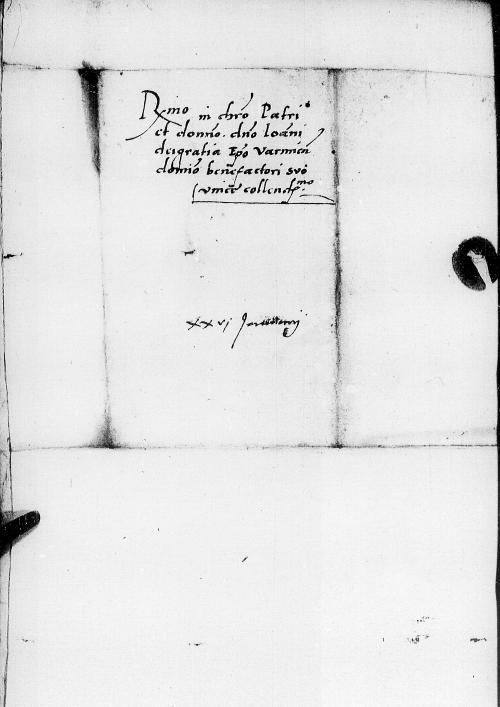 Rmo in chro Patri
et domno. dno Ioãni
dei gratia Epo Varmien̄
domio bene͂factori suo
unice collendmo.
xxvj Januarij